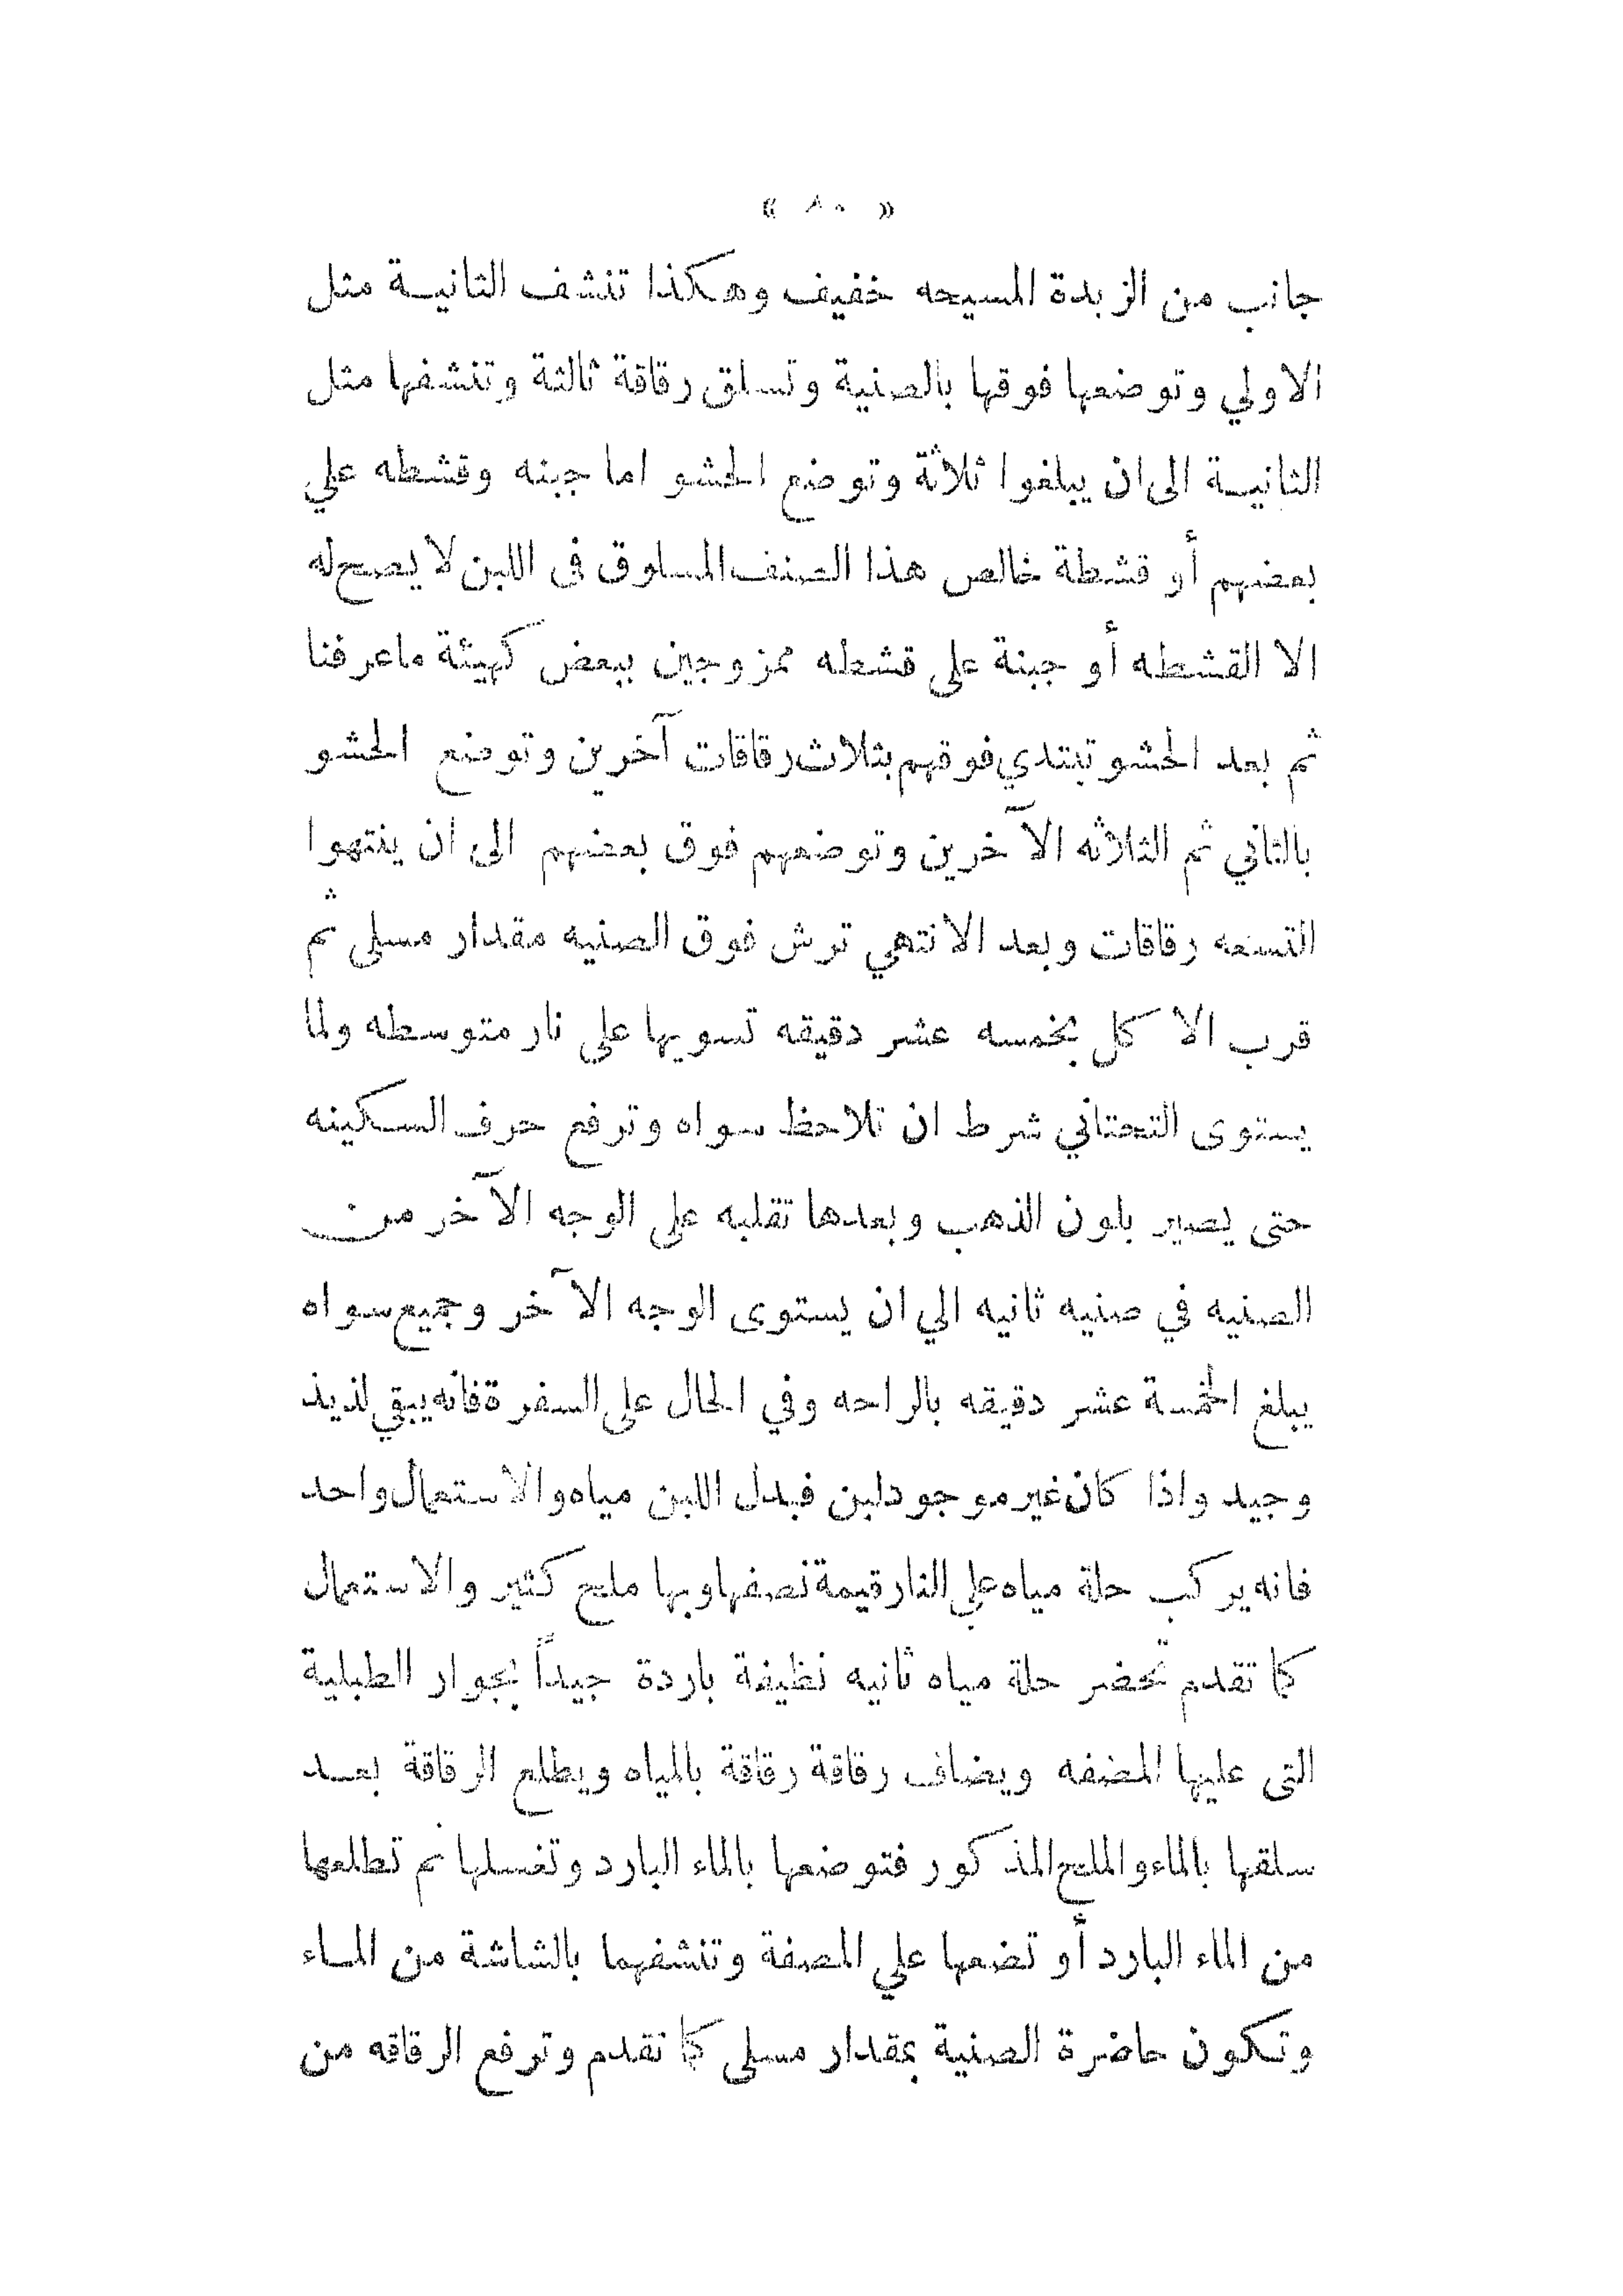 « ٨٠ »
جانب من الزبدة المسيحه خفيف وهكذا تنشف الثانيـة مثل
الاولي وتوضعها فوقها بالصنية وتسلق رقاقة ثالثة وتنشفها مثل
الثانيـة الى ان يبلغوا ثلاثة وتوضع الحشو اما جبنه وقشطه علي
بعضهم أو قشطة خالص هذا الصنف المسلوق فى اللبن لا يصح له
الا القشطه أو جبنة على قشطه ممزوجين ببعض كهيئة ماعرفنا
ثم بعد الحشو تبتدي فوقهم بثلاث رقاقات آخرين وتوضع الحشو
بالثاني ثم الثلاثه الآخرين وتوضعهم فوق بعضهم الى ان ينتهوا
التسعه رقاقات وبعد الانتهي ترش فوق الصنيه مقدار مسلى ثم
قرب الاكل بخمسه عشر دقيقه تسويها على نار متوسطه ولما
يستوى التحتاني شرط ان تلاحظ سواه وترفع حرف السكينه
حتى يصير بلون الذهب وبعدها تقلبه على الوجه الآخر من
الصنيه في صنيه ثانيه الي ان يستوى الوجه الآخر وجميع سواه
يبلغ الخمسة عشر دقيقه بالراحه وفي الحال على السفرة فانه يبقي لذيذ
وجيد واذا كان غير موجود لبن فبدل اللبن مياه والاستعمال واحد
فانه يركب حلة مياه علي النار قيمة نصفها وبها ملح كثير والاستعمال
كما تقدم تحضر حلة مياه ثانيه نظيفة باردة جيداً بجوار الطبلية
التى عليها المضفه ويضاف رقاقة رقاقة بالمياه ويطلع الرقاقة بعـد
سلقها بالماء والملح المذكور فتوضعها بالماء البارد وتغسلها ثم تطلعها
من الماء البارد أو تضعها علي المصفة وتنشفهما بالشاشة من المـاء
وتكون حاضرة الصنية بمقدار مسلى كما تقدم وترفع الرقاقه من